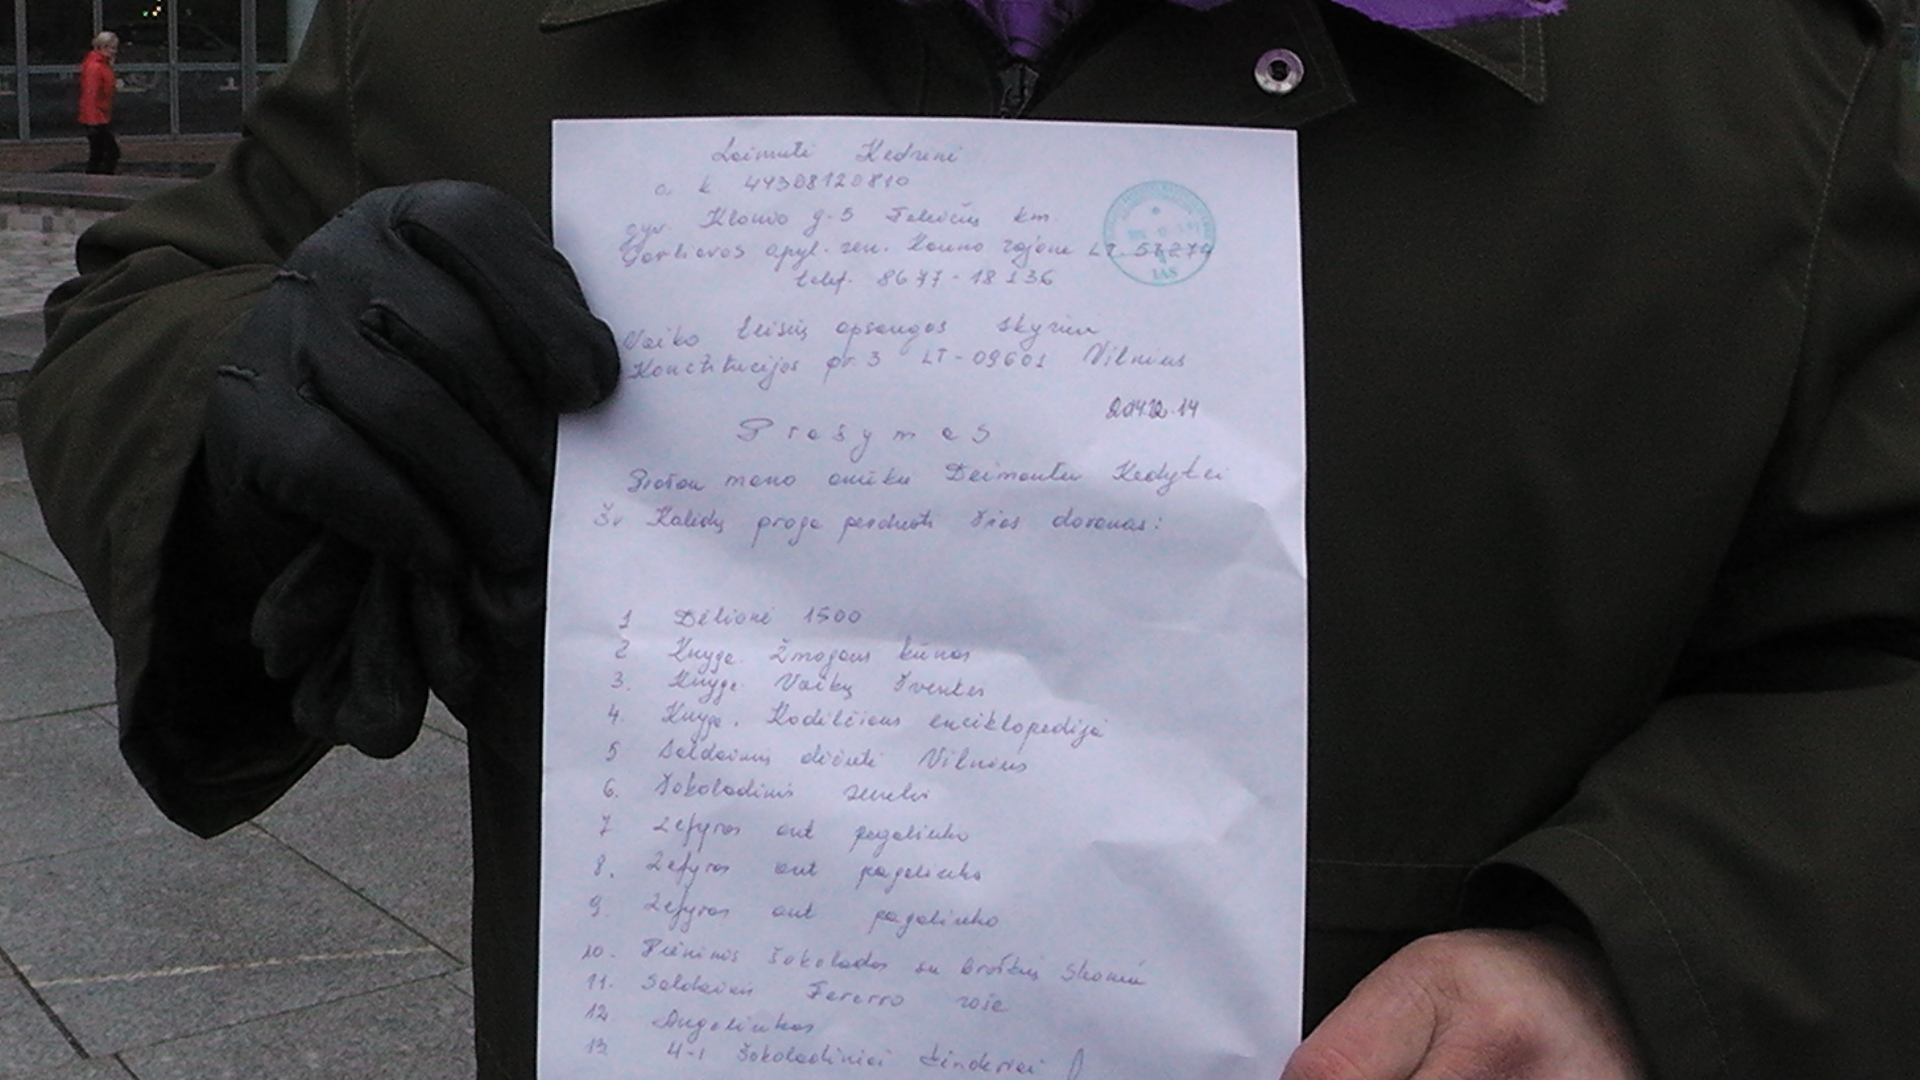 Laimutė Kedienė
a. k 44308120810
gyv. Klonio g-5 km.
Garliavos apyl. sen. Kauno rajone LT. 53274
telef. 8677-18136
IAS
Vaiko teisių apsaugos skyriui
Konstitucijos pr. 3 LT-09601 Vilnius
2014.12.14
Prašymas
Prašau mano anūkei Deimantei Kedytei
Šv Kalėdų proga perduoti šias dovanas:
1 Dėlionė 1500
2 Knyga Žmogaus kūnas
3. Knyga Vaikų šventės
4. Knyga. Kodėlčiaus enciklopedija
5 Saldainių dėžutė Vilnius
6. Šokoladinis senelis
7 Zefyras ant pagaliuko
8. Zefyras ant pagaliuko
9. Zefyras ant pagaliuko
10. Pieninis šokoladas su braškių skoniu
11. Saldainis Fererro rože
12. Angeliukas
13 4-1 šokoladiniai kinderiai